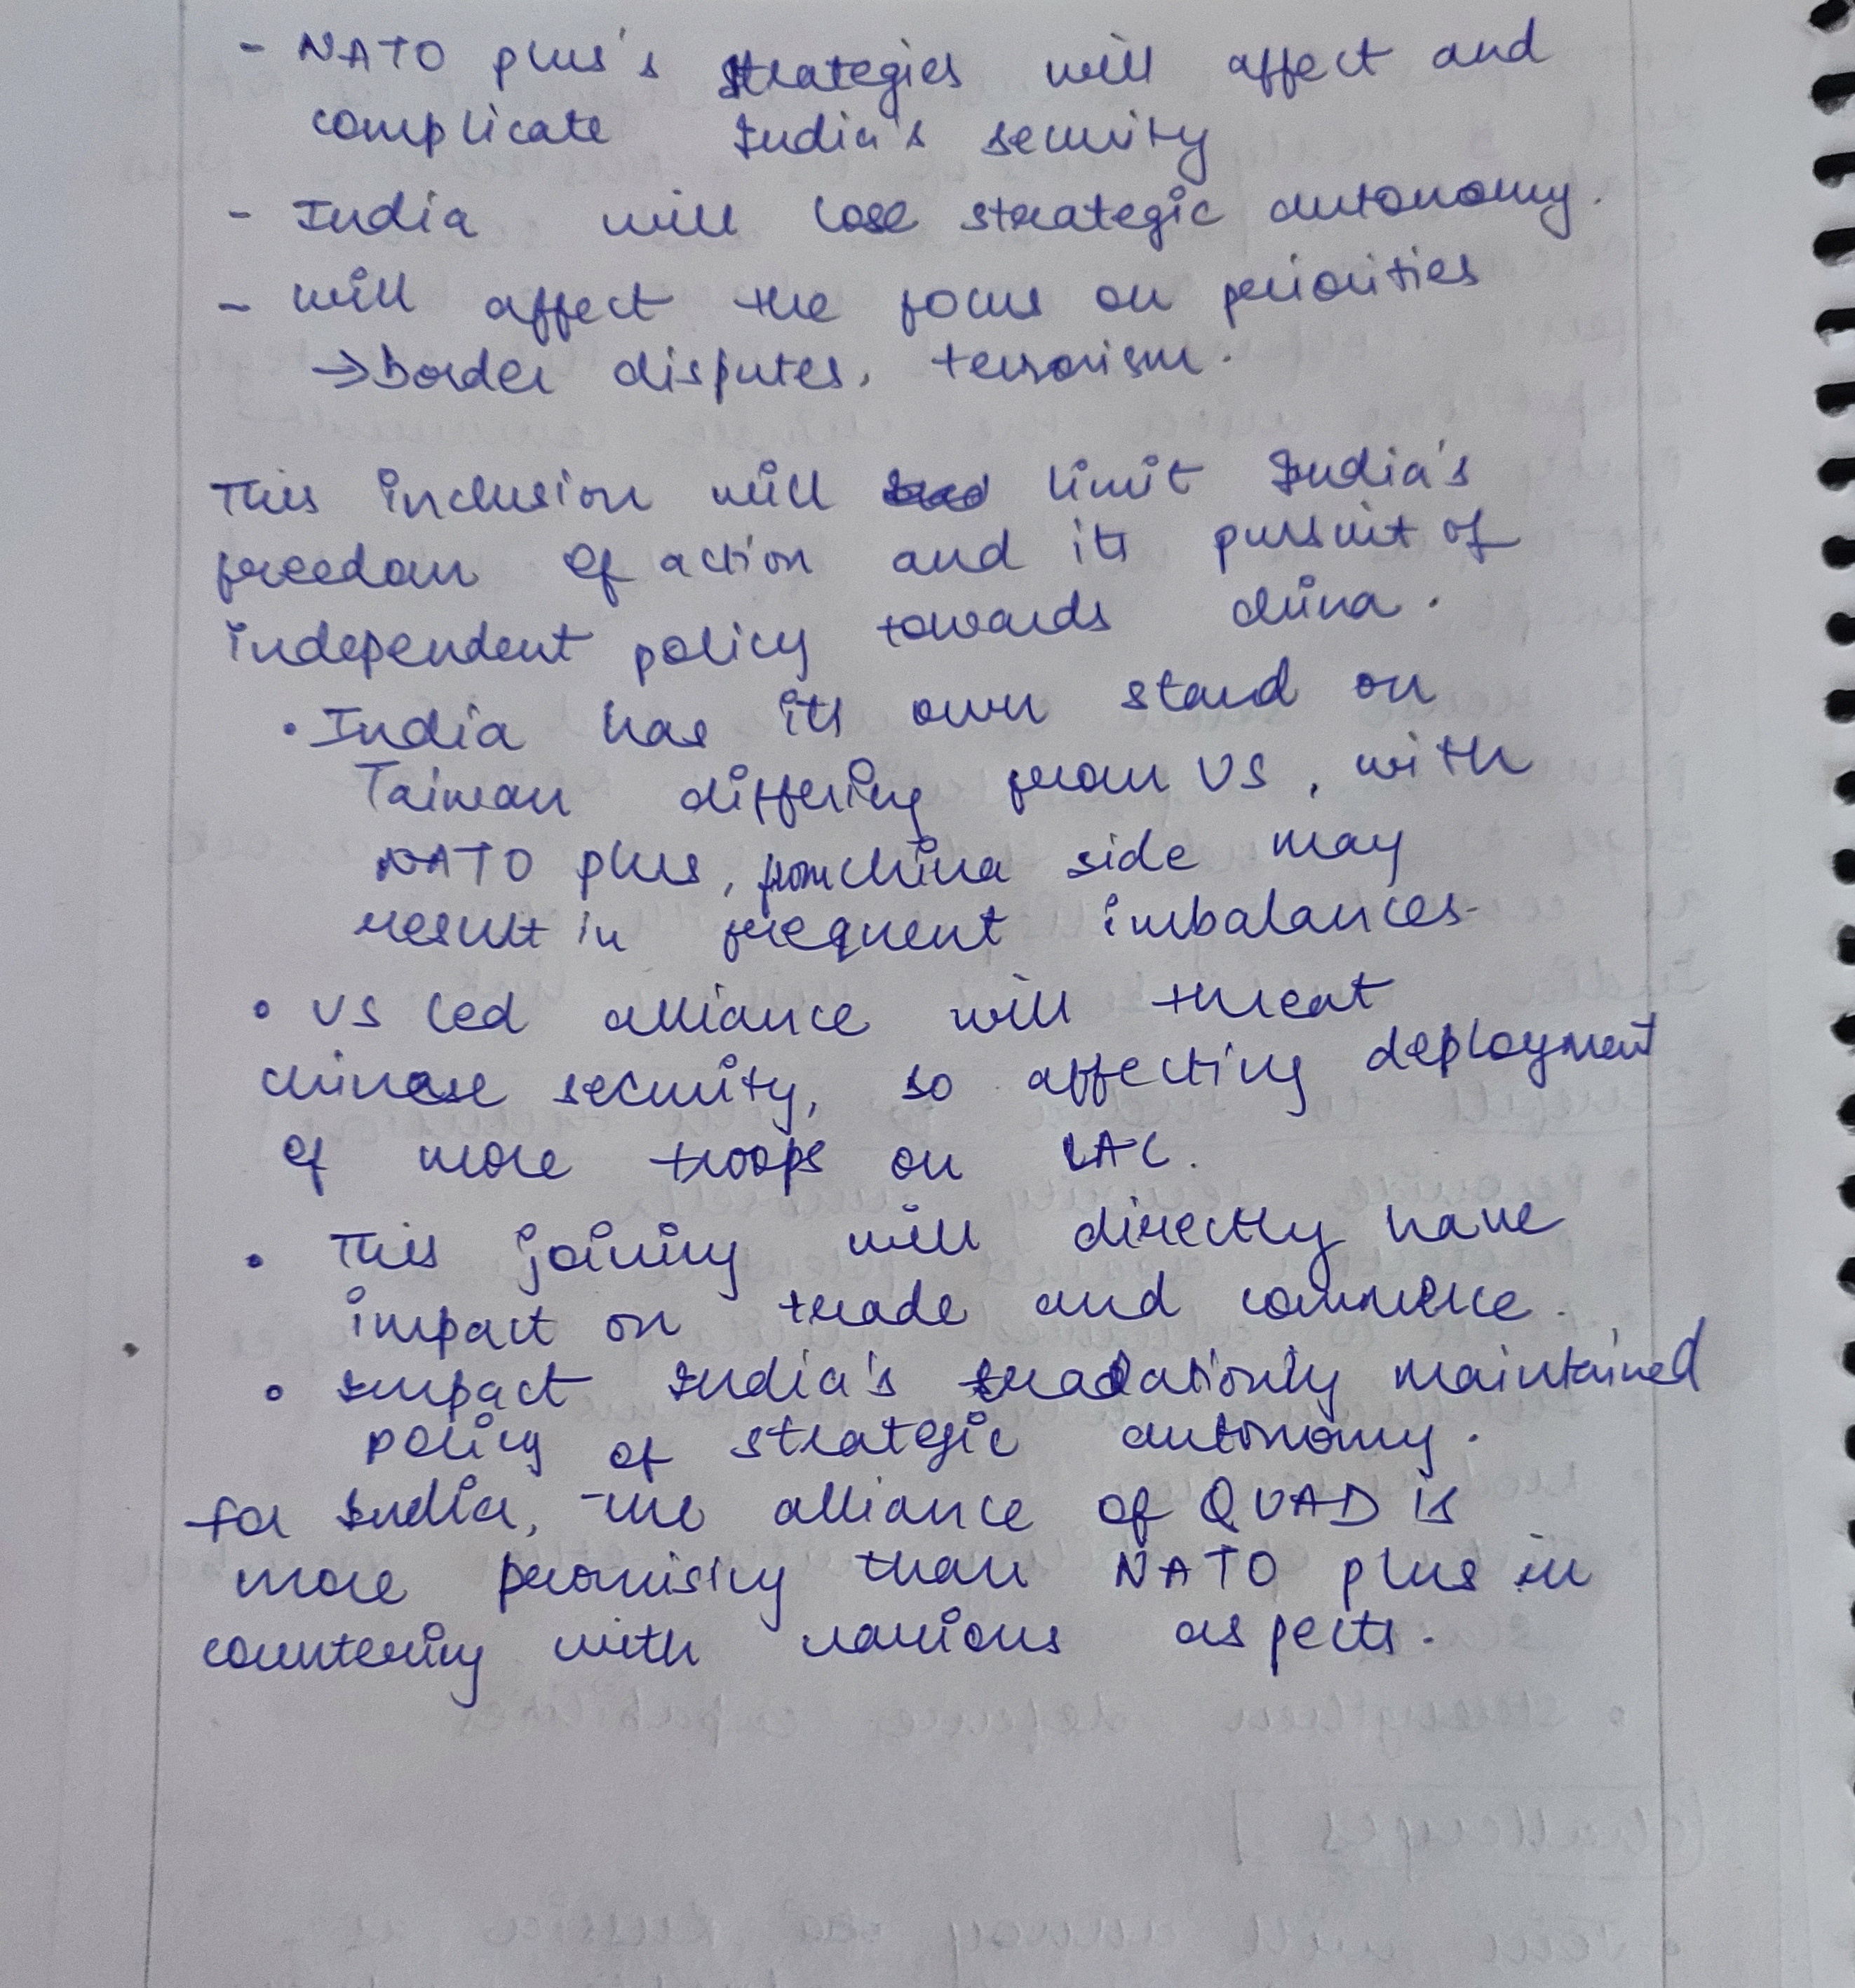 - NATO plus's strategies will affect and
complicate India's security
- India will lose strategic autonomy.
- will affect the focus on periorities
→ border disputes, terrorism.
This inclusion will limit India's
freedom of action and its pursuit of
independent policy towards china.
• India has its own stand on
Taiwan differing from US, with
NATO plus, from china side may
result in frequent imbalances.
• US led alliance will threat
chinese security, so affecting deployment
of more troops on LAC.
• This joining will directly have
impact on trade and commerce.
• Impact India's maintained
policy of strategic autonomy.
for India, the alliance of QUAD is
more promising than NATO plus in
countering with various aspects.